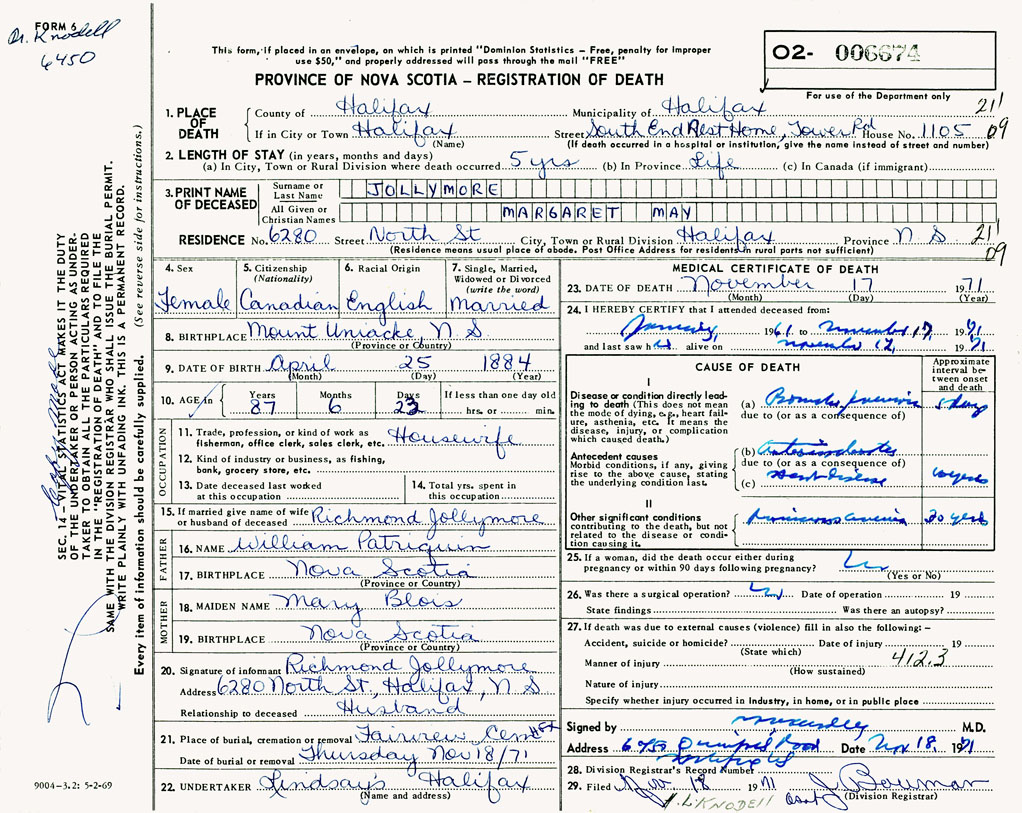 FORM 6
Dr. Knodell
6450
This form, if placed in an envelope, on which is printed "Dominion Statistics – Free, penalty for improper
use $50," and properly addressed will pass through the mail "FREE"
O2- 006674
For use of the Department only
PROVINCE OF NOVA SCOTIA – REGISTRATION OF DEATH
1. PLACE OF DEATH
County of Halifax Municipality of Halifax 21'
If in City or Town Halifax Street South End Rest Home, Tower Rd House No. 1105 09
(Name) (If death occurred in a hospital or institution, give the name instead of street and number)
2. LENGTH OF STAY (in years, months and days)
(a) In City, Town or Rural Division where death occurred 5 yrs (b) In Province Life (c) In Canada (if immigrant)
3. PRINT NAME OF DECEASED
Surname or Last Name JOLLYMORE
All Given or Christian Names MARGARET MAY
RESIDENCE No. 6280 Street North St City, Town or Rural Division Halifax Province N S 21'
(Residence means usual place of abode. Post Office Address for residents in rural ports not sufficient) 09
4. Sex
Female
5. Citizenship
(Nationality)
Canadian
6. Racial Origin
English
7. Single, Married,
Widowed or Divorced
(write the word)
Married
8. BIRTHPLACE Mount Uniacke, N. S.
(Province or Country)
9. DATE OF BIRTH April 25 1884
(Month) (Day) (Year)
10. AGE in Years 87 Months 6 Days 23 If less than one day old
hrs. or min.
OCCUPATION
11. Trade, profession, or kind of work as
fisherman, office clerk, sales clerk, etc. Housewife
12. Kind of industry or business, as fishing,
bank, grocery store, etc.
13. Date deceased last worked
at this occupation
14. Total yrs. spent in
this occupation
15. If married give name of wife
or husband of deceased Richmond Jollymore
FATHER
16. NAME William Patriquin
17. BIRTHPLACE Nova Scotia
(Province or Country)
MOTHER
18. MAIDEN NAME Mary Blois
19. BIRTHPLACE Nova Scotia
(Province or Country)
20. Signature of informant Richmond Jollymore
Address 6280 North St., Halifax, N. S
Relationship to deceased Husband
21. Place of burial, cremation or removal Fairview Cem
Date of burial or removal Thursday Nov 18/71
22. UNDERTAKER Lindsay's Halifax
(Name and address)
MEDICAL CERTIFICATE OF DEATH
23. DATE OF DEATH November 17 1971
(Month) (Day) (Year)
24. I HEREBY CERTIFY that I attended deceased from:
January, 1961 to November 17, 1971
and last saw h alive on November 17, 1971
CAUSE OF DEATH
Approximate interval between onset and death
I
Disease or condition directly leading
to death (This does not mean
the mode of dying, e.g., heart failure,
asthenia, etc. It means the
disease, injury, or complication
which caused death.)
(a)
due to (or as a consequence of)
Antecedent causes
Morbid conditions, if any, giving
rise to the above cause, stating
the underlying condition last.
(b)
due to (or as a consequence of)
(c) Heart disease
II
Other significant conditions
contributing to the death, but not
related to the disease or condition
causing it.
anemia 20 years
25. If a woman, did the death occur either during
pregnancy or within 90 days following pregnancy?
(Yes or No)
26. Was there a surgical operation? Date of operation 19
State findings Was there an autopsy?
27. If death was due to external causes (violence) fill in also the following: –
Accident, suicide or homicide? Date of injury 19
(State which)
Manner of injury 412.3
(How sustained)
Nature of injury
Specify whether injury occurred in Industry, in home, or in public place
Signed by M.D.
Address Road Date Nov 18, 1971
28. Division Registrar's Record Number
29. Filed Nov 18 1971 J. Bowman
(Division Registrar)
H. L. KNODELL
SEC. 14 – VITAL STATISTICS ACT MAKES IT THE DUTY
OF THE UNDERTAKER OR PERSON ACTING AS UNDERTAKER
TO OBTAIN ALL THE PARTICULARS REQUIRED
IN THE "REGISTRATION OF DEATH" AND TO FILE THE
SAME WITH THE DIVISION REGISTRAR WHO SHALL ISSUE THE BURIAL PERMIT.
WRITE PLAINLY WITH UNFADING INK. THIS IS A PERMANENT RECORD.
Every item of information should be carefully supplied. (See reverse side for instructions.)
9004-3.2: 5-2-69